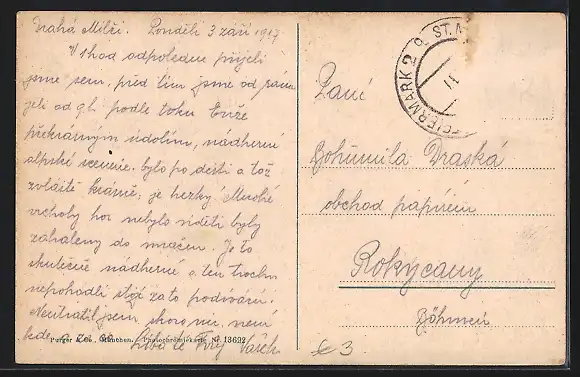 Drahá Milči. Pondělí 3 září 1917
V 1 hod odpoledne přijeli
jsme sem, před tím jsme od rána
jeli od 9h. podle toku Enže
překrásným údolím, nádherné
alpské scenerie. bylo po dešti a tož
zvláště krásně; je hezky. Mnohé
vrcholy hor nebylo viděti byly
zahaleny do mračen. Je to
skutečně nádherné a ten trochu
nepohodlí stojí za to podívání.
Neutratil jsem skoro nic, není
kde. Líbá tě Tvůj Vašek
Purger & Co., München. Photochromiekarte Nr. 13692
STEIERMARK 2 9 ST.
11
Paní
Bohumila Draská
obchod papírem
Rokycany
Böhmen
€ 3